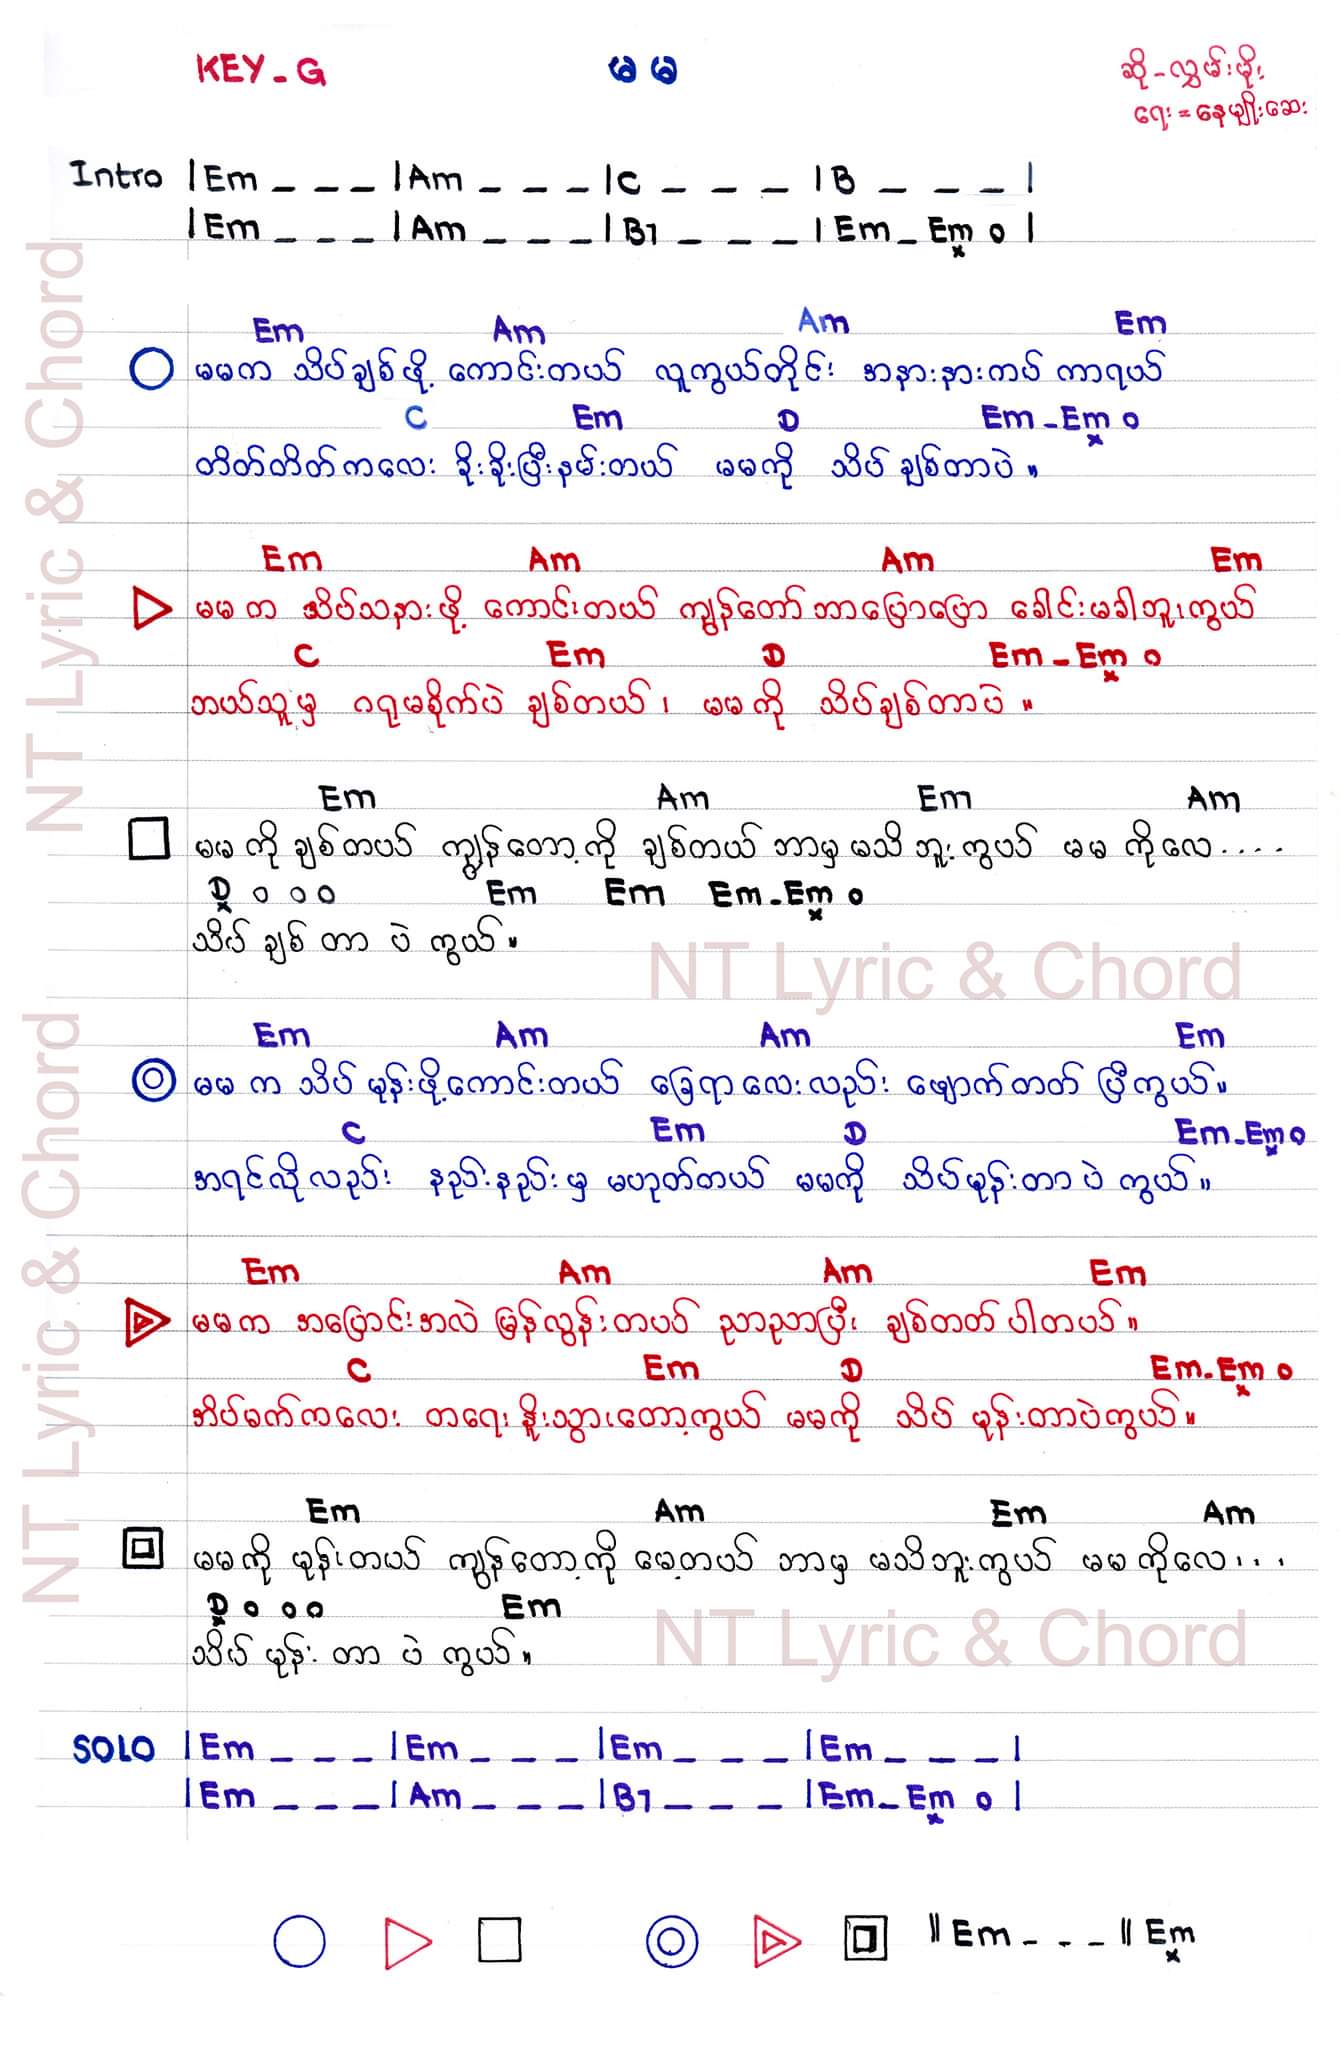 KEY - G မမ ဆို - လွှမ်းမိုး
ရေး = နေမျိုးဆေး
Intro | Em _ _ _ | Am _ _ _ | C _ _ _ | B _ _ _ |
| Em _ _ _ | Am _ _ _ | B7 _ _ _ | Em _ Em x o |
Em Am Am Em
မမက သိပ်ချစ်ဖို့ ကောင်းတယ် လူကွယ်တိုင်း အနားနားကပ် ကာရယ်
C Em D Em - Em x o
တိတ်တိတ်ကလေး ခိုးခိုးပြီးနမ်းတယ် မမကို သိပ် ချစ်တာပဲ ။
Em Am Am Em
မမ က သိပ်သနားဖို့ ကောင်းတယ် ကျွန်တော် ဘာပြောပြော ခေါင်းမခါဘူးကွယ်
C Em D Em - Em x o
ဘယ်သူ့မှ ဂရုမစိုက်ပဲ ချစ်တယ် ၊ မမကို သိပ်ချစ်တာပဲ ။
Em Am Em Am
မမ ကို ချစ်တယ် ကျွန်တော့်ကို ချစ်တယ် ဘာမှ မသိ ဘူးကွယ် မမ ကိုလေ ....
D x o o o Em Em Em - Em x o
သိပ် ချစ် တာ ပဲ ကွယ် ။
NT Lyric & Chord
Em Am Am Em
မမ က သိပ် မုန်းဖို့ကောင်းတယ် ခြေရာလေးလည်း ဖျောက်တတ် ပြီကွယ် ။
C Em D Em - Em x o
အရင်လိုလည်း နည်းနည်းမှ မဟုတ်တယ် မမကို သိပ်မုန်းတာ ပဲ ကွယ် ။
Em Am Am Em
မမက အပြောင်းအလဲ မြန်လွန်းတယ် ညာညာပြီး ချစ်တတ် ပါတယ် ။
C Em D Em - Em x o
အိပ်မက်ကလေး တရေး နိုးသွားတော့ကွယ် မမကို သိပ် မုန်းတာပဲကွယ် ။
Em Am Em Am
မမကို မုန်းတယ် ကျွန်တော့်ကို မေ့တယ် ဘာမှ မသိဘူးကွယ် မမ ကိုလေ ...
D x o o o Em
သိပ် မုန်း တာ ပဲ ကွယ် ။
NT Lyric & Chord
SOLO | Em _ _ _ | Em _ _ _ | Em _ _ _ | Em _ _ _ |
| Em _ _ _ | Am _ _ _ | B7 _ _ _ | Em _ Em x o |
|| Em - - - || Em x
NT Lyric & Chord
NT Lyric & Chord